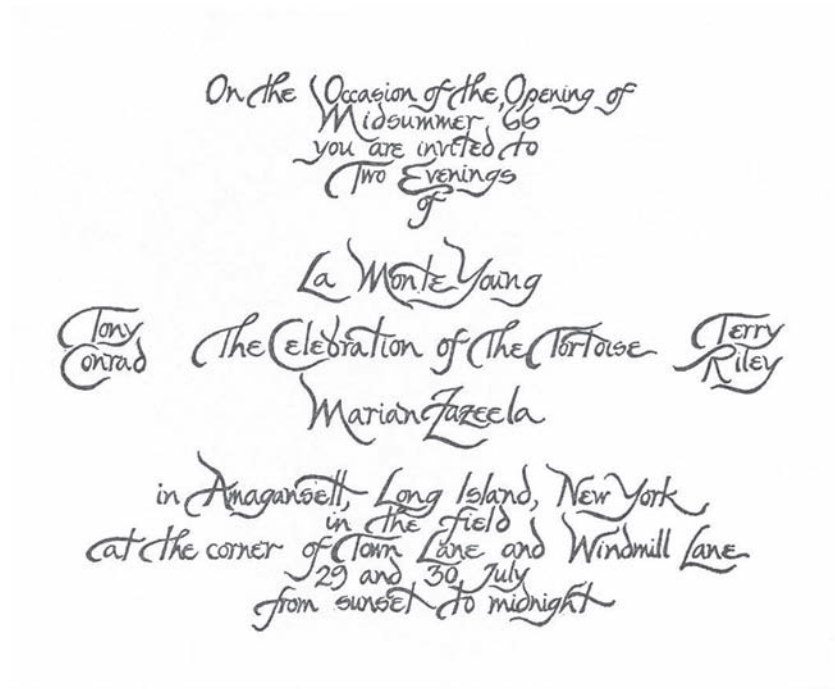 On the Occasion of the Opening of
Midsummer, 66
you are invited to
Two Evenings
of
La Monte Young
Tony
Conrad
The Celebration of The Tortoise
Terry
Riley
Marian Zazeela
in Amagansett, Long Island, New York
in the field
at the corner of Town Lane and Windmill Lane
29 and 30 July
from sunset to midnight